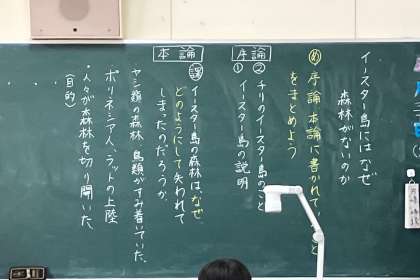 イースター島にはなぜ
森林がないのか
め 序論、本論に書かれて
こと
をまとめよう
序論
② チリのイースター島のこと
① イースター島の説明
本論
課 イースター島の森林は、なぜ
どのようにして失われて
しまったのだろうか。
ヤシ類の森林 鳥類がすみ着いていた。
ポリネシア人、ラットの上陸
・人々が森林を切り開いた。
(目的)